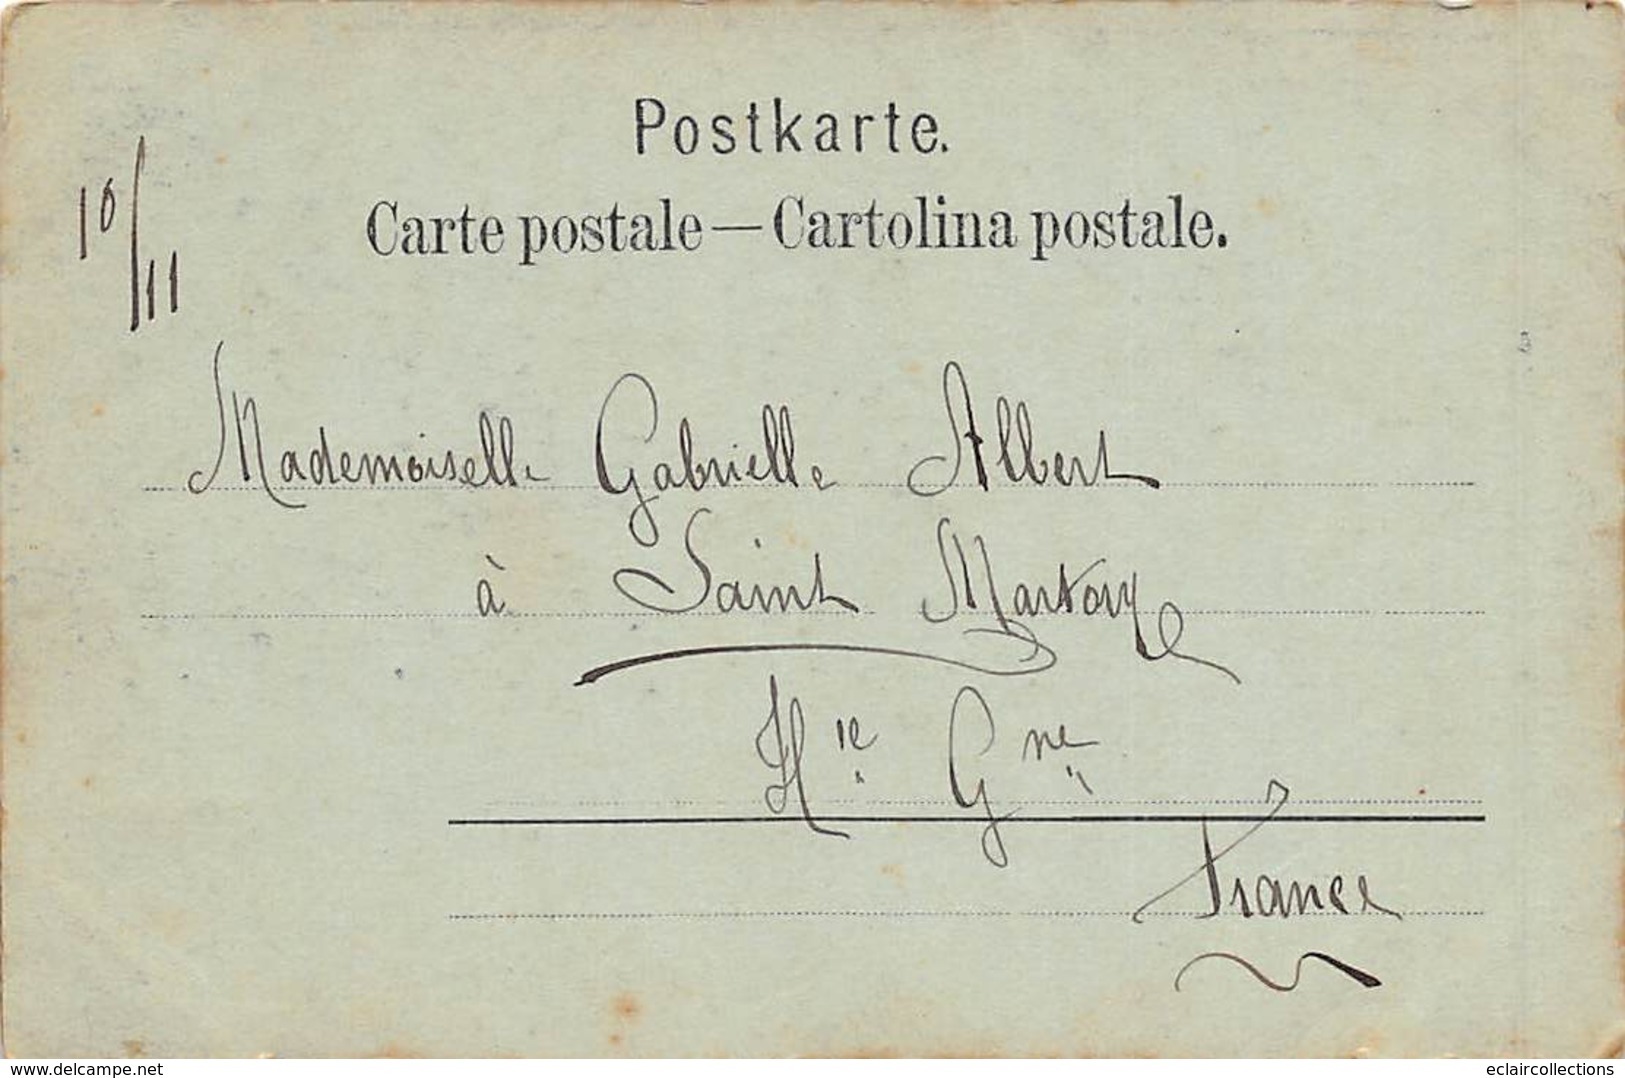 Postkarte.
Carte postale — Cartolina postale.
10/11
Mademoiselle Gabrielle Albert
à Saint Martory
Hie Gne
France
www.delcampe.net
eclaircollections